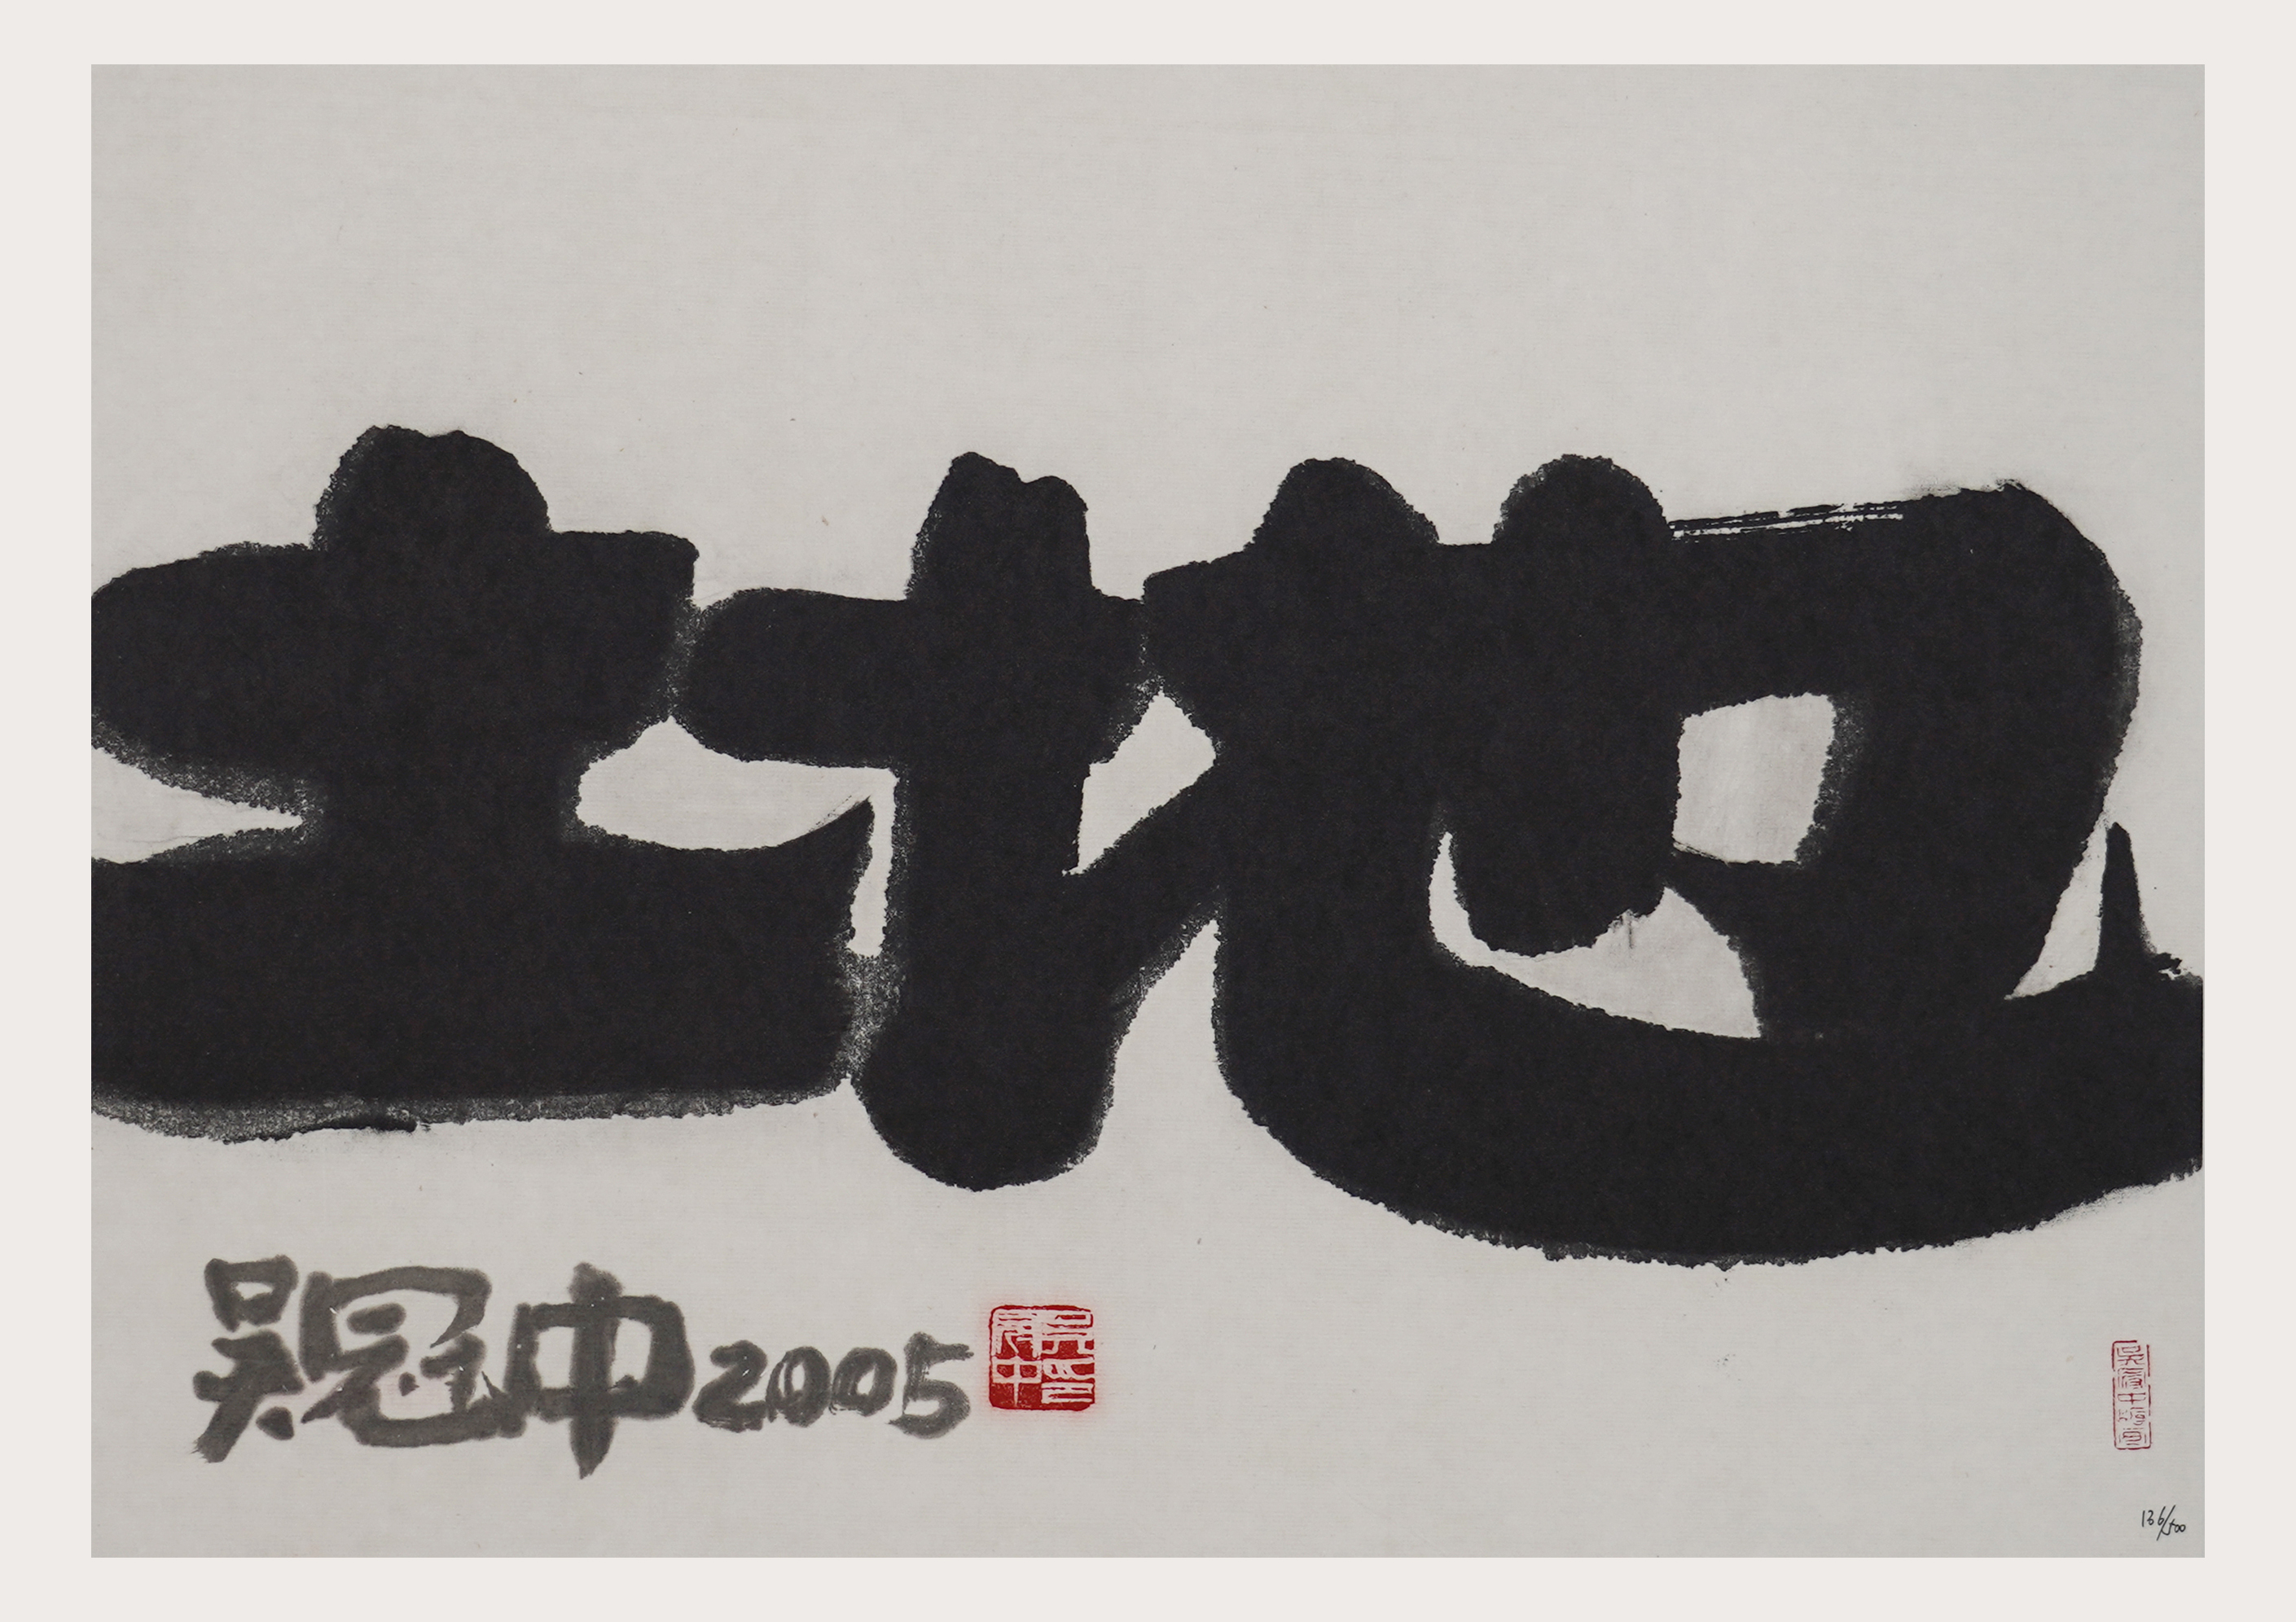 土地
吴冠中2005
吴冠中印
136/500